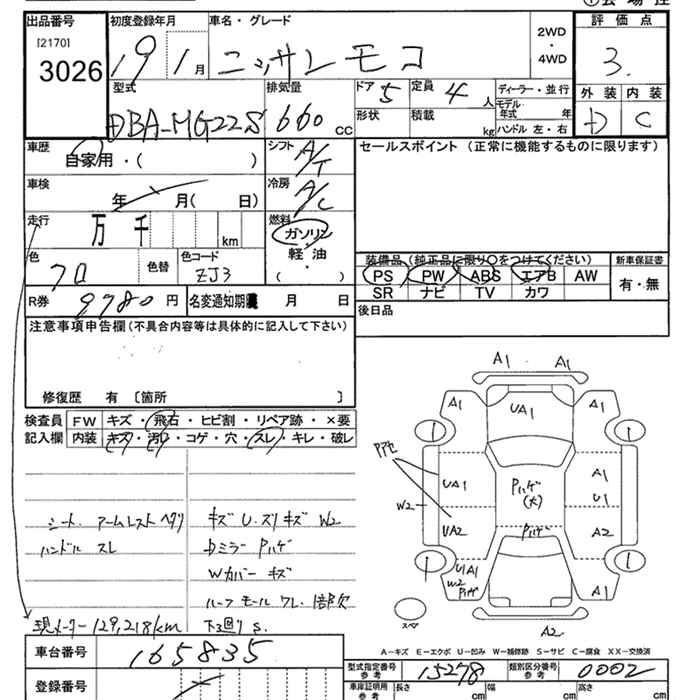 出品番号 初度登録年月 車名・グレード 2WD・4WD 評価点
[2170]
3026 19 1月 ニッサン モコ 3.
型式 排気量 ドア 5 定員 4人 ディーラー・並行 外装 内装
DBA-MG22S 660cc 形状 積載 kg モデル年式 年 D C
ハンドル 左・右
車歴 シフト A/T セールスポイント (正常に機能するものに限ります)
自家用・( )
車検 年 月( 日) 冷房 A/C
走行 万 千 km 燃料 ガソリン
軽油
( )
色 クロ 色替 色コード ZJ3
装備品 (純正品に限り○をつけてください) 新車保証書
PS PW ABS エアB AW 有・無
SR ナビ TV カワ
R券 9780円 名変通知期限 月 日
後日品
注意事項申告欄(不具合内容等は具体的に記入して下さい)
修復歴 有 〔箇所 〕
検査員 FW キズ・飛石・ヒビ割・リペア跡・×要
記入欄 内装 キズ・汚レ・コゲ・穴・スレ・キレ・破レ
シート、アームレスト ヘタリ
ハンドル スレ
キズ U.スリキズ W2
Dミラー Pハゲ
Wカバー キズ
ルーフモール ワレ、1部欠
現メーター 129,218km 下3回りS.
A1 A1
A1 UA1 A1
Pアセ
UA1 Pハゲ(大) A1
U1
W2
UA2 Pハゲ A2
UA1
W2
Pハゲ A1
スペア
A2
A-キズ E-エクボ U-凹み W-補修跡 S-サビ C-腐食 XX-交換済
車台番号 165835
型式指定番号 参考 15278 類別区分番号 参考 0002
登録番号
車庫証明用 参考 長さ cm 幅 cm 高さ cm